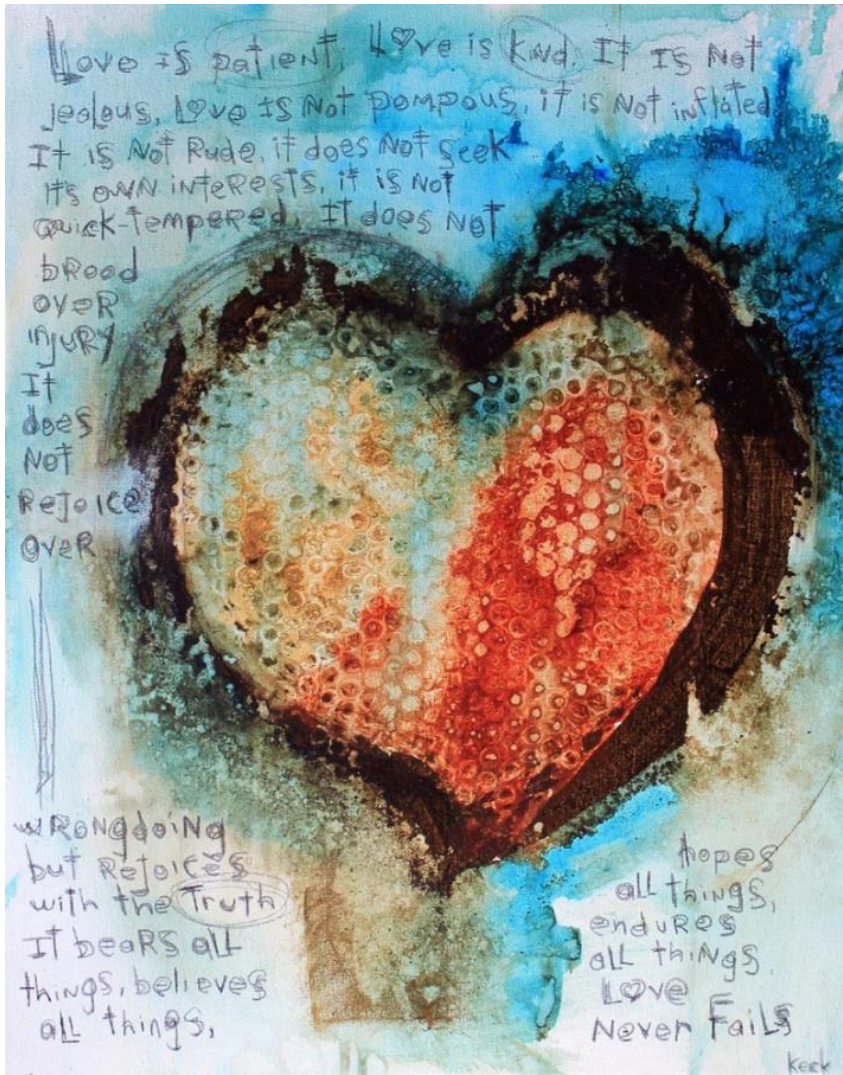 Love is patient, Love is kind. It Is Not
jealous, Love Is Not pompous, it is Not inflated
It is Not Rude, it does Not seek
its own interests, it is Not
quick-tempered, It does Not
brood
over
injury
It
does
Not
Rejoice
over
wrongdoing
but Rejoices
with the Truth
It bears all
things, believes
all things,
hopes
all things,
endures
all things.
Love
Never Fails
Keck